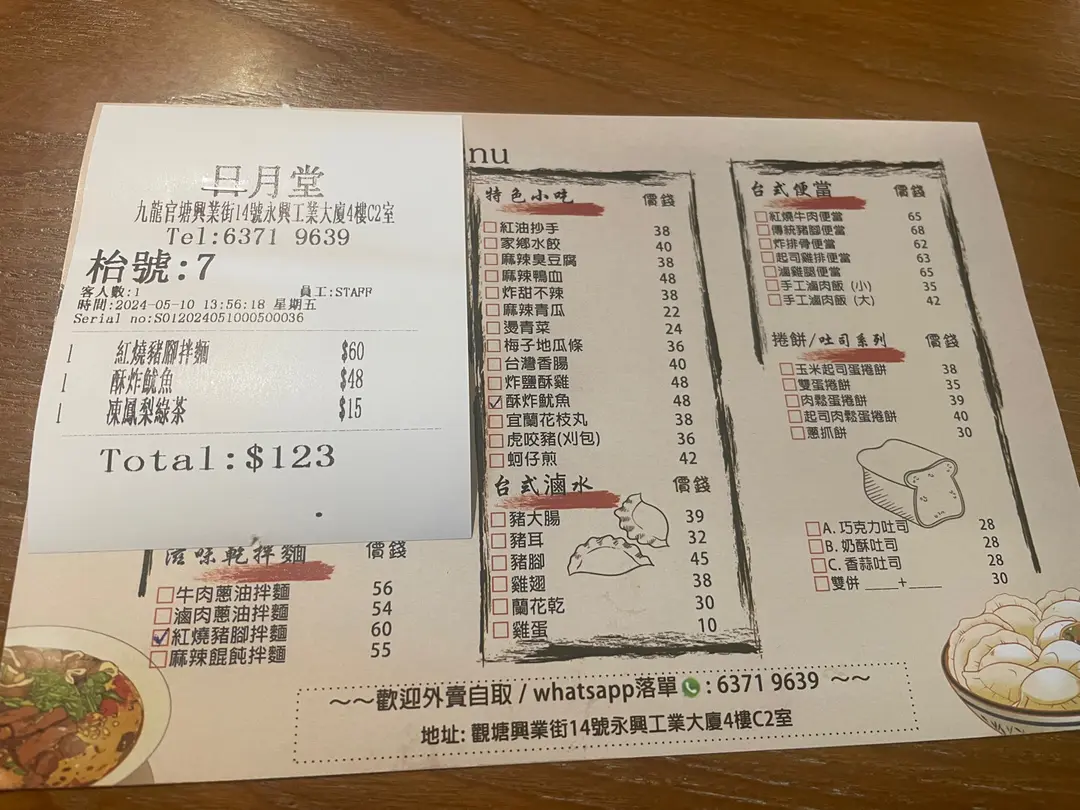 日月堂
九龍官塘興業街14號永興工業大廈4樓C2室
Tel:6371 9639
枱號:7
客人數:1 員工:STAFF
時間:2024-05-10 13:56:18 星期五
Serial no:S012024051000500036
1 紅燒豬腳拌麵 $60
1 酥炸魷魚 $48
1 凍鳳梨綠茶 $15
Total:$123
滋味乾拌麵 價錢
牛肉蔥油拌麵 56
滷肉蔥油拌麵 54
紅燒豬腳拌麵 60
麻辣餛飩拌麵 55
nu
特色小吃 價錢
紅油抄手 38
家鄉水餃 40
麻辣臭豆腐 38
麻辣鴨血 48
炸甜不辣 38
麻辣青瓜 22
燙青菜 24
梅子地瓜條 36
台灣香腸 40
炸鹽酥雞 48
酥炸魷魚 48
宜蘭花枝丸 38
虎咬豬(刈包) 36
蚵仔煎 42
台式滷水 價錢
豬大腸 39
豬耳 32
豬腳 45
雞翅 38
蘭花乾 30
雞蛋 10
台式便當 價錢
紅燒牛肉便當 65
傳統豬腳便當 68
炸排骨便當 62
起司雞排便當 63
滷雞腿便當 65
手工滷肉飯 (小) 35
手工滷肉飯 (大) 42
捲餅/吐司系列 價錢
玉米起司蛋捲餅 38
雙蛋捲餅 35
肉鬆蛋捲餅 39
起司肉鬆蛋捲餅 40
蔥抓餅 30
A. 巧克力吐司 28
B. 奶酥吐司 28
C. 香蒜吐司 28
雙併 ____+____ 30
~~歡迎外賣自取 / whatsapp落單 : 6371 9639 ~~
地址: 觀塘興業街14號永興工業大廈4樓C2室